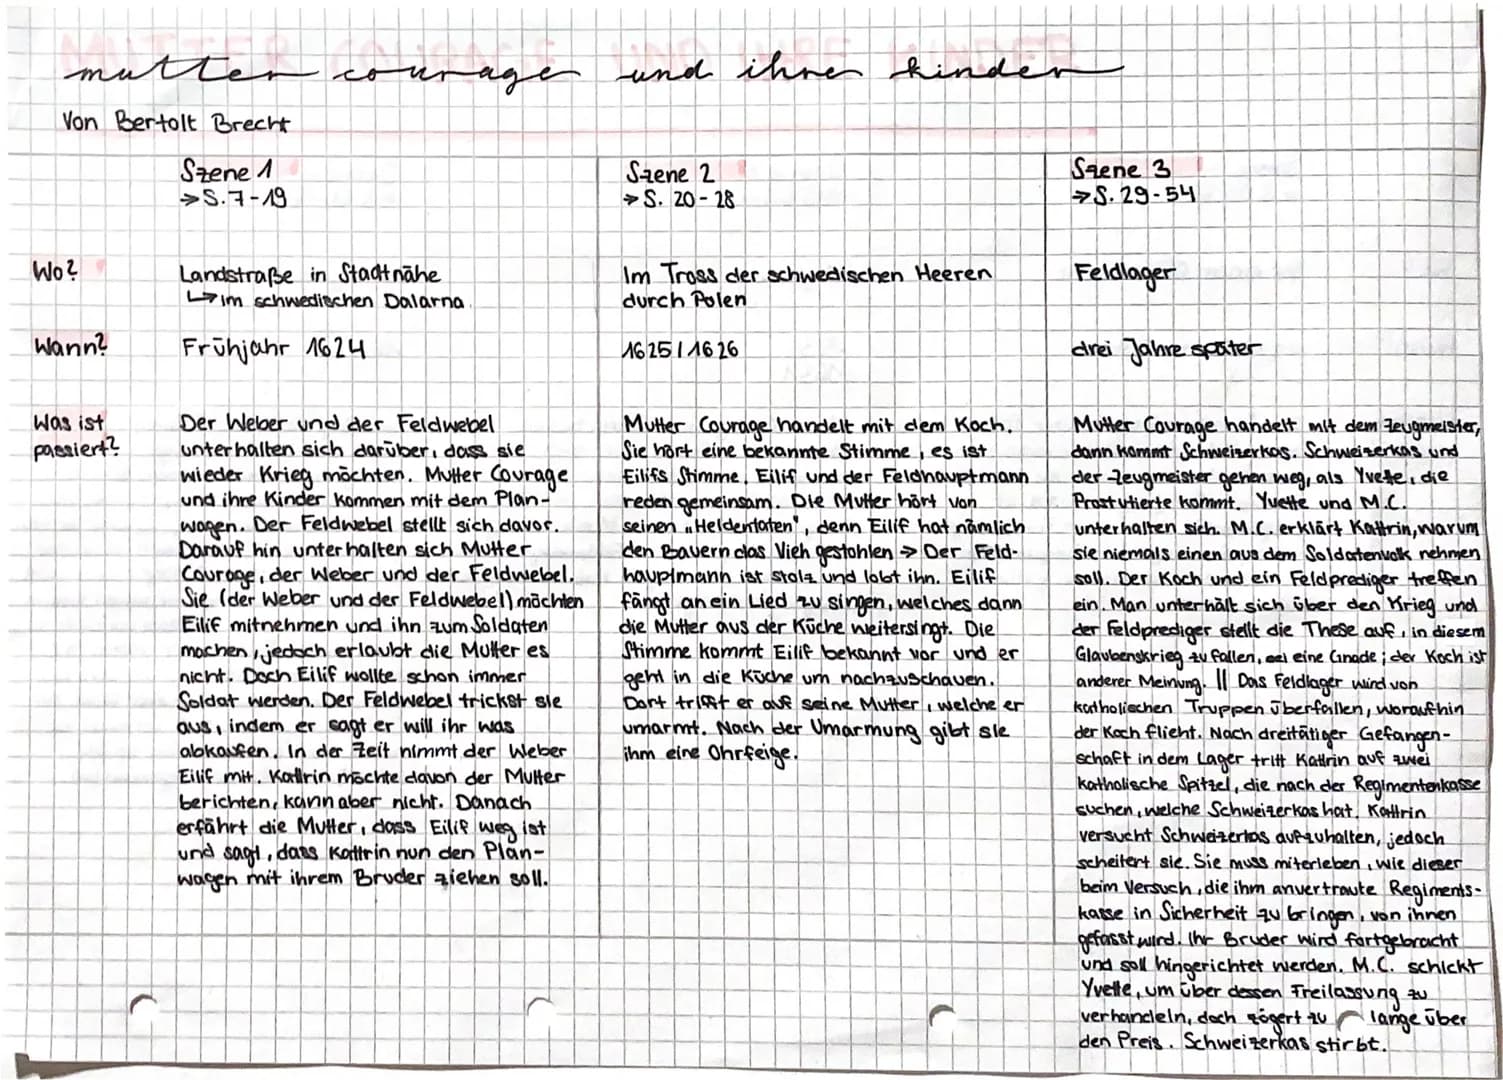 mutter courage und ihre kinder
Von Bertolt Brecht
Szene 1
→S.7-19
Szene 2
→S. 20-28
Szene 3
→S. 29-54
Wo?
Landstraße in Stadtnähe
↳im schwedischen Dalarna
Im Tross der schwedischen Heeren
durch Polen
Feldlager
Wann?
Frühjahr 1624
1625/1626
drei Jahre später
Was ist
passiert?
Der Weber und der Feldwebel
unterhalten sich darüber, dass sie
wieder Krieg möchten. Mutter Courage
und ihre Kinder kommen mit dem Plan-
wagen. Der Feldwebel stellt sich davor.
Darauf hin unterhalten sich Mutter
Courage, der Weber und der Feldwebel.
Sie (der Weber und der Feldwebel) möchten
Eilif mitnehmen und ihn zum Soldaten
machen, jedoch erlaubt die Mutter es
nicht. Doch Eilif wollte schon immer
Soldat werden. Der Feldwebel trickst sie
aus, indem er sagt er will ihr was
abkaufen. In der Zeit nimmt der Weber
Eilif mit. Kattrin möchte davon der Mutter
berichten, kann aber nicht. Danach
erfährt die Mutter, dass Eilif weg ist
und sagt, dass Kattrin nun den Plan-
wagen mit ihrem Bruder ziehen soll.
Mutter Courage handelt mit dem Koch.
Sie hört eine bekannte Stimme, es ist
Eilifs Stimme. Eilif und der Feldhauptmann
reden gemeinsam. Die Mutter hört von
seinen „Heldentaten", denn Eilif hat nämlich
den Bauern das Vieh gestohlen → Der Feld-
hauptmann ist stolz und lobt ihn. Eilif
fängt an ein Lied zu singen, welches dann
die Mutter aus der Küche weitersingt. Die
Stimme kommt Eilif bekannt vor und er
geht in die Küche um nachzuschauen.
Dort trifft er auf seine Mutter, welche er
umarmt. Nach der Umarmung gibt sie
ihm eine Ohrfeige.
Mutter Courage handelt mit dem Zeugmeister,
dann kommt Schweizerkas. Schweizerkas und
der Zeugmeister gehen weg, als Yvette, die
Prostutierte kommt. Yvette und M.C.
unterhalten sich. M.C. erklärt Kattrin, warum
sie niemals einen aus dem Soldatenvolk nehmen
soll. Der Koch und ein Feldprediger treffen
ein. Man unterhält sich über den Krieg und
der Feldprediger stellt die These auf, in diesem
Glaubenskrieg zu fallen, sei eine Gnade; der Koch ist
anderer Meinung. || Das Feldlager wird von
katholischen Truppen überfallen, woraufhin
der Koch flieht. Nach dreitätiger Gefangen-
schaft in dem Lager tritt Kattrin auf zwei
katholische Spitzel, die nach der Regimentenkasse
suchen, welche Schweizerkas hat. Kattrin
versucht Schweizerkas aufzuhalten, jedoch
scheitert sie. Sie muss miterleben, wie dieser
beim Versuch, die ihm anvertraute Regiments-
kasse in Sicherheit zu bringen, von ihnen
gefasst wird. Ihr Bruder wird fortgebracht
und soll hingerichtet werden. M.C. schickt
Yvette, um über dessen Freilassung zu
verhandeln, doch zögert zu lange über
den Preis. Schweizerkas stirbt.